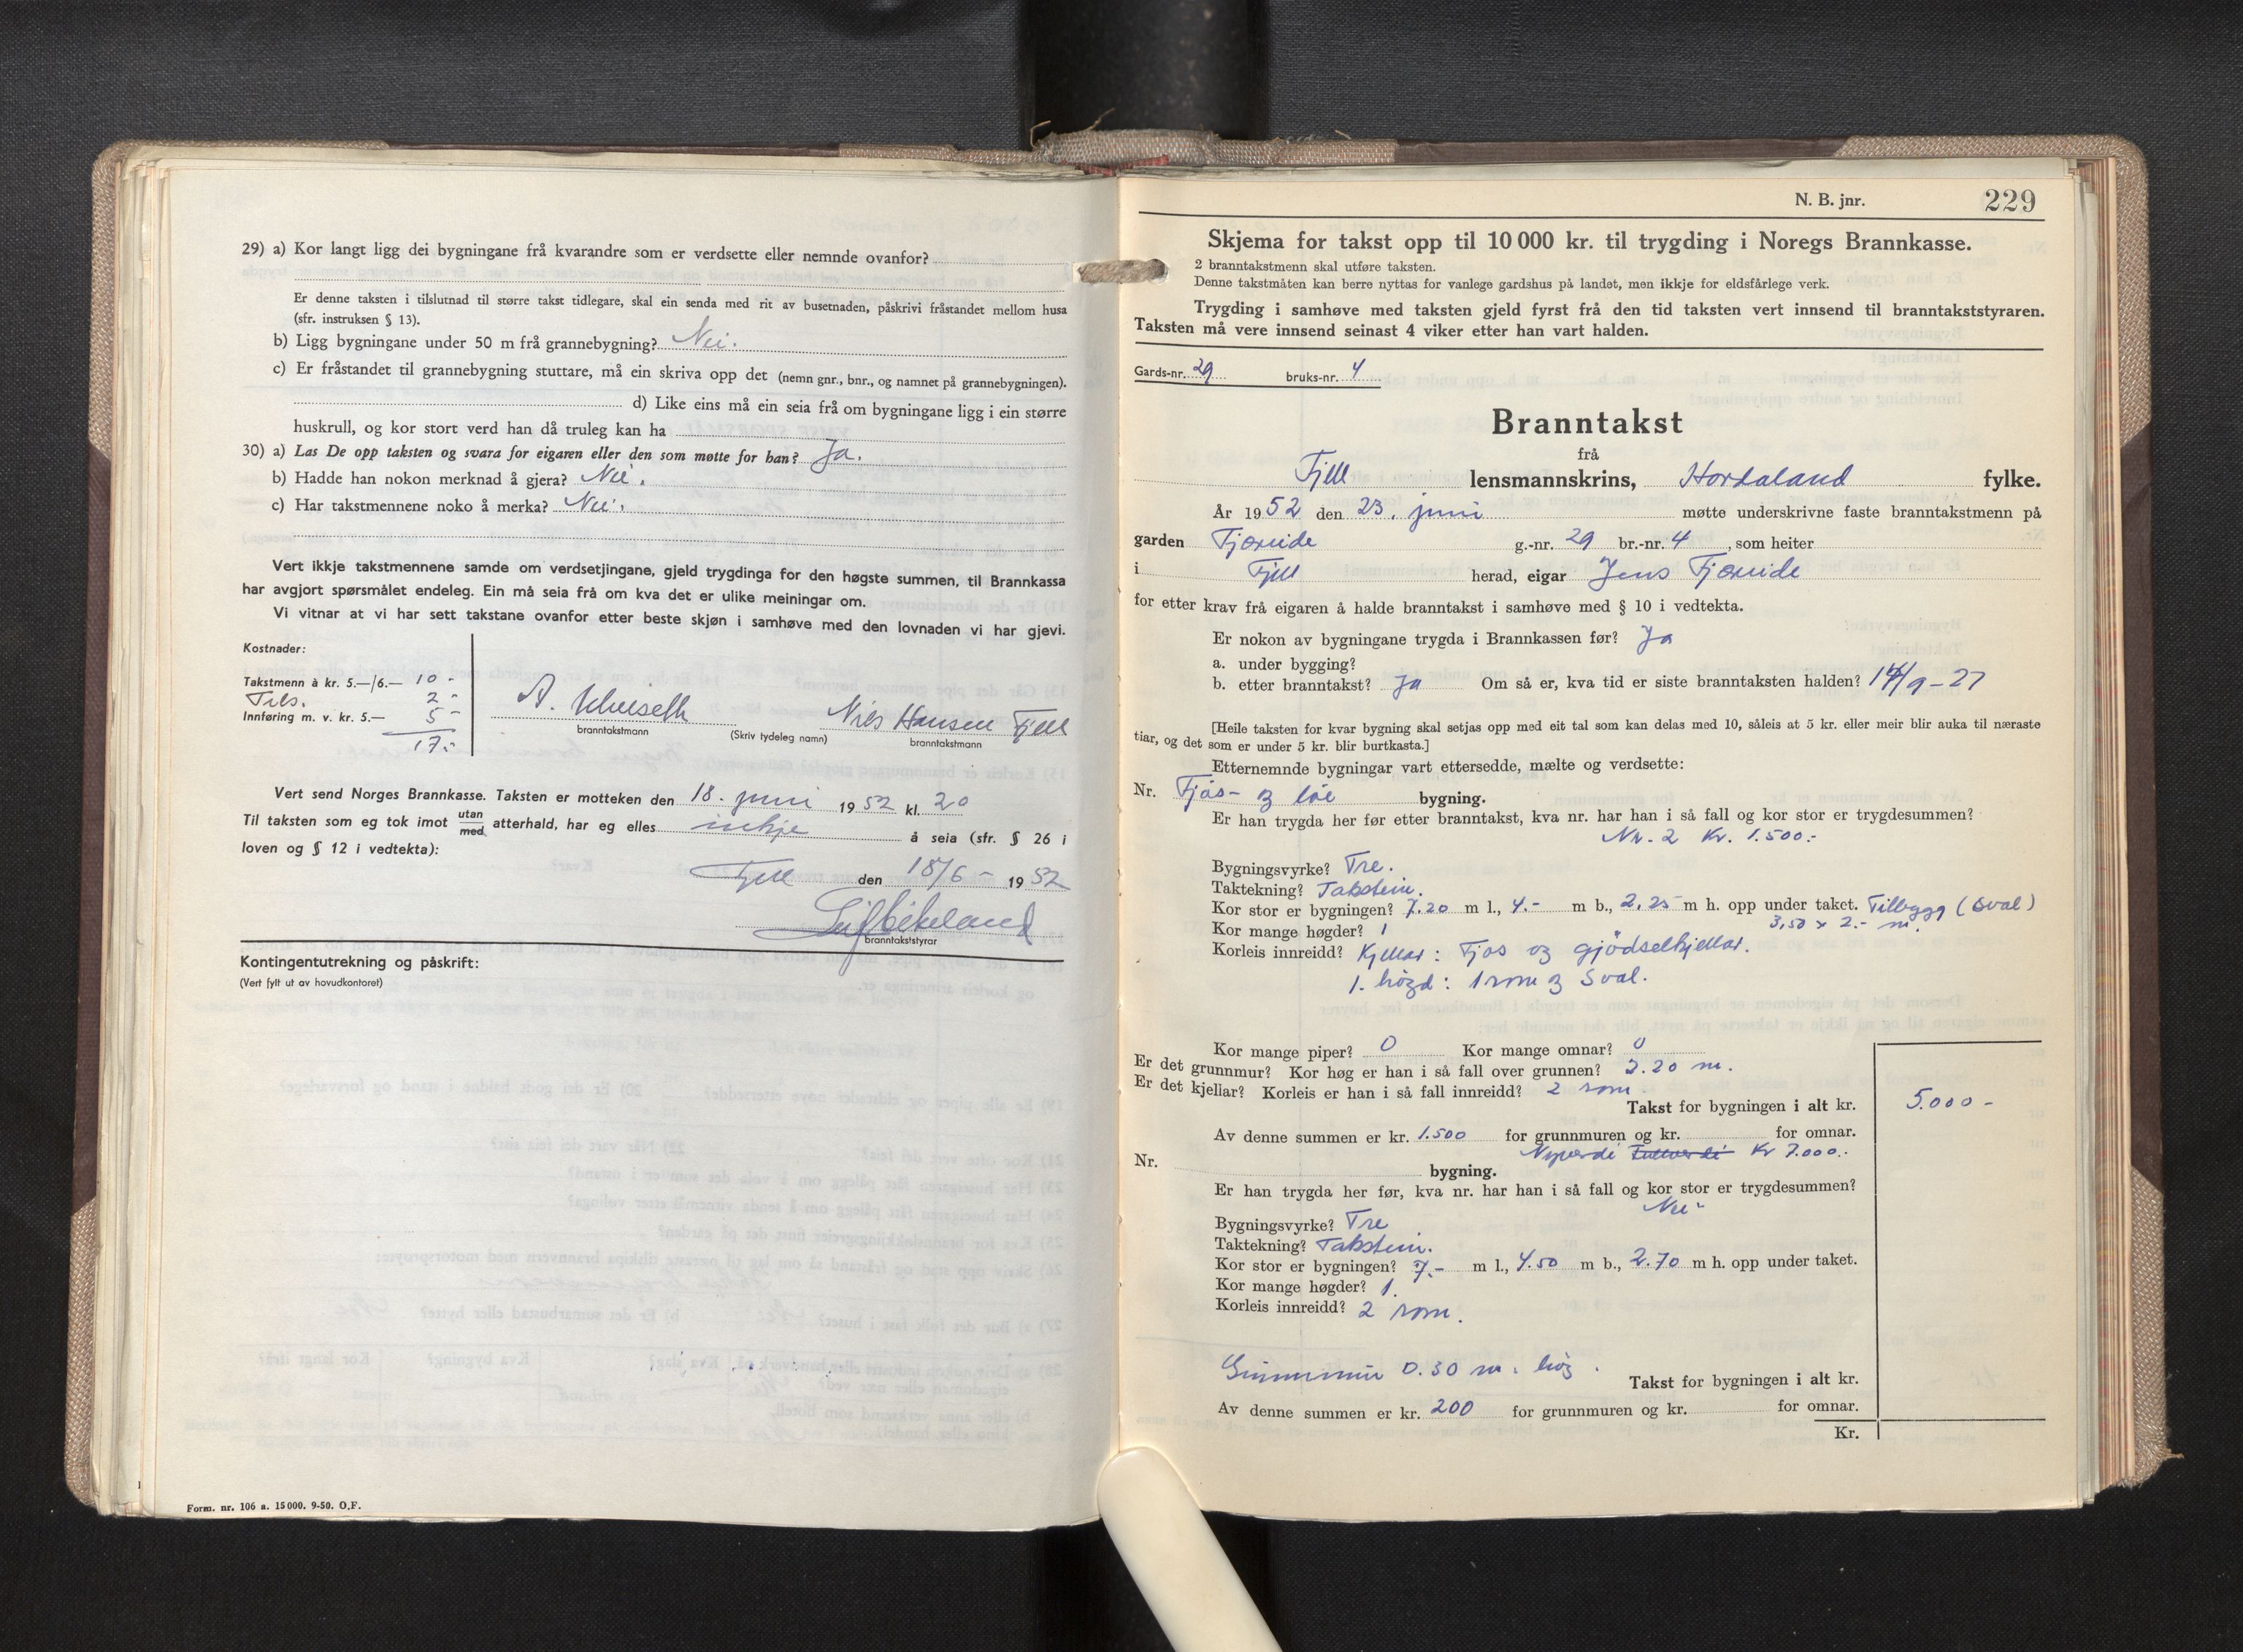 29) a) Kor langt ligg dei bygningane frå kvarandre som er verdsette eller nemnde ovanfor?
Er denne taksten i tilslutnad til større takst tidlegare, skal ein senda med rit av busetnaden, påskrivi fråstandet mellom husa
(sfr. instruksen § 13).
b) Ligg bygningane under 50 m frå grannebygning? Nei.
c) Er fråstandet til grannebygning stuttare, må ein skriva opp det (nemn gnr., bnr., og namnet på grannebygningen).
d) Like eins må ein seia frå om bygningane ligg i ein større
huskrull, og kor stort verd han då truleg kan ha
30) a) Las De opp taksten og svara for eigaren eller den som møtte for han? Ja.
b) Hadde han nokon merknad å gjera? Nei.
c) Har takstmennene noko å merka? Nei.
Vert ikkje takstmennene samde om verdsetjingane, gjeld trygdinga for den høgste summen, til Brannkassa
har avgjort spørsmålet endeleg. Ein må seia frå om kva det er ulike meiningar om.
Vi vitnar at vi har sett takstane ovanfor etter beste skjøn i samhøve med den lovnaden vi har gjevi.
Kostnader:
Takstmenn à kr. 5.—/6.— 10 -
Tils. 2 -
Innføring m. v. kr. 5.— 5 -
17.-
A. Nils Hansen Fjell
branntakstmann (Skriv tydeleg namn) branntakstmann
Vert send Norges Brannkasse. Taksten er motteken den 18. juni 1952 kl. 20
Til taksten som eg tok imot utan/med atterhald, har eg elles inkje å seia (sfr. § 26 i
loven og § 12 i vedtekta):
Fjell den 18/6 - 1952
branntakststyrar
Kontingentutrekning og påskrift:
(Vert fylt ut av hovudkontoret)
Form. nr. 106 a. 15 000. 9-50. O.F.
N. B. jnr. 229
Skjema for takst opp til 10 000 kr. til trygding i Noregs Brannkasse.
2 branntakstmenn skal utføre taksten.
Denne takstmåten kan berre nyttas for vanlege gardshus på landet, men ikkje for eldsfårlege verk.
Trygding i samhøve med taksten gjeld fyrst frå den tid taksten vert innsend til branntakststyraren.
Taksten må vere innsend seinast 4 viker etter han vart halden.
Gards-nr. 29 bruks-nr. 4
Branntakst
frå
Fjell lensmannskrins, Hordaland fylke.
År 1952 den 23. juni møtte underskrivne faste branntakstmenn på
garden Fjæreide g.-nr. 29 br.-nr. 4, som heiter
i Fjell herad, eigar Jens Fjæreide
for etter krav frå eigaren å halde branntakst i samhøve med § 10 i vedtekta.
Er nokon av bygningane trygda i Brannkassen før? Ja
a. under bygging?
b. etter branntakst? Ja Om så er, kva tid er siste branntaksten halden? 14/9-27
[Heile taksten for kvar bygning skal setjas opp med eit tal som kan delas med 10, såleis at 5 kr. eller meir blir auka til næraste
tiar, og det som er under 5 kr. blir burtkasta.]
Etternemnde bygningar vart ettersedde, mælte og verdsette:
Nr. Fjøs- og løe bygning.
Er han trygda her før etter branntakst, kva nr. har han i så fall og kor stor er trygdesummen?
Nr. 2 Kr. 1.500.-
Bygningsvyrke? Tre.
Taktekning? Takstein.
Kor stor er bygningen? 7.20 m l., 4.- m b., 2.25 m h. opp under taket. Tilbygg (sval)
3,50 x 2.- m.
Kor mange høgder? 1
Korleis innreidd? Kjellar: Fjøs og gjödselkjellar.
1. högd: 1 rom og sval.
Kor mange piper? 0 Kor mange omnar? 0
Er det grunnmur? Kor høg er han i så fall over grunnen? 2.20 m.
Er det kjellar? Korleis er han i så fall innreidd? 2 rom
Takst for bygningen i alt kr. 5.000 -
Av denne summen er kr. 1.500 for grunnmuren og kr. for omnar.
Nyverdi Fullverdi Kr 7.000.-
Nr. bygning.
Er han trygda her før, kva nr. har han i så fall og kor stor er trygdesummen?
Nei
Bygningsvyrke? Tre
Taktekning? Takstein.
Kor stor er bygningen? 7.- m l., 4.50 m b., 2.70 m h. opp under taket.
Kor mange høgder? 1.
Korleis innreidd? 2 rom.
Grunnmur 0.30 m. høg.
Takst for bygningen i alt kr.
Av denne summen er kr. 200 for grunnmuren og kr. for omnar.
Kr.